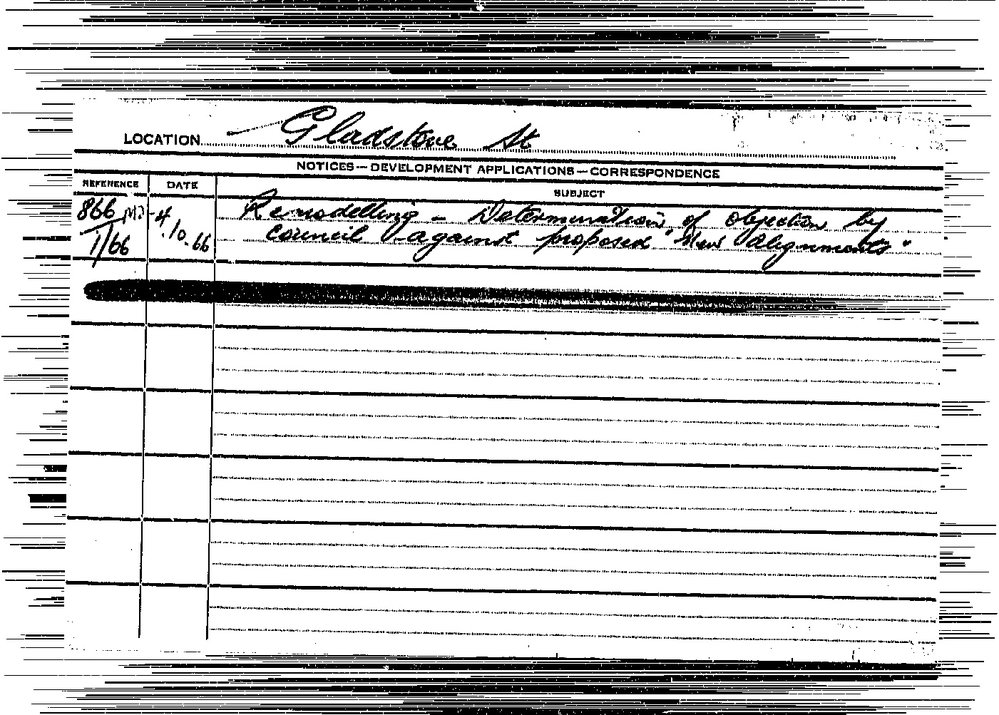 LOCATION Gladstone St
NOTICES—DEVELOPMENT APPLICATIONS—CORRESPONDENCE
REFERENCE DATE SUBJECT
866 MJ 4 Remodelling - Determination of objection by
1/66 .10.66 council against proposed "New Alignments"